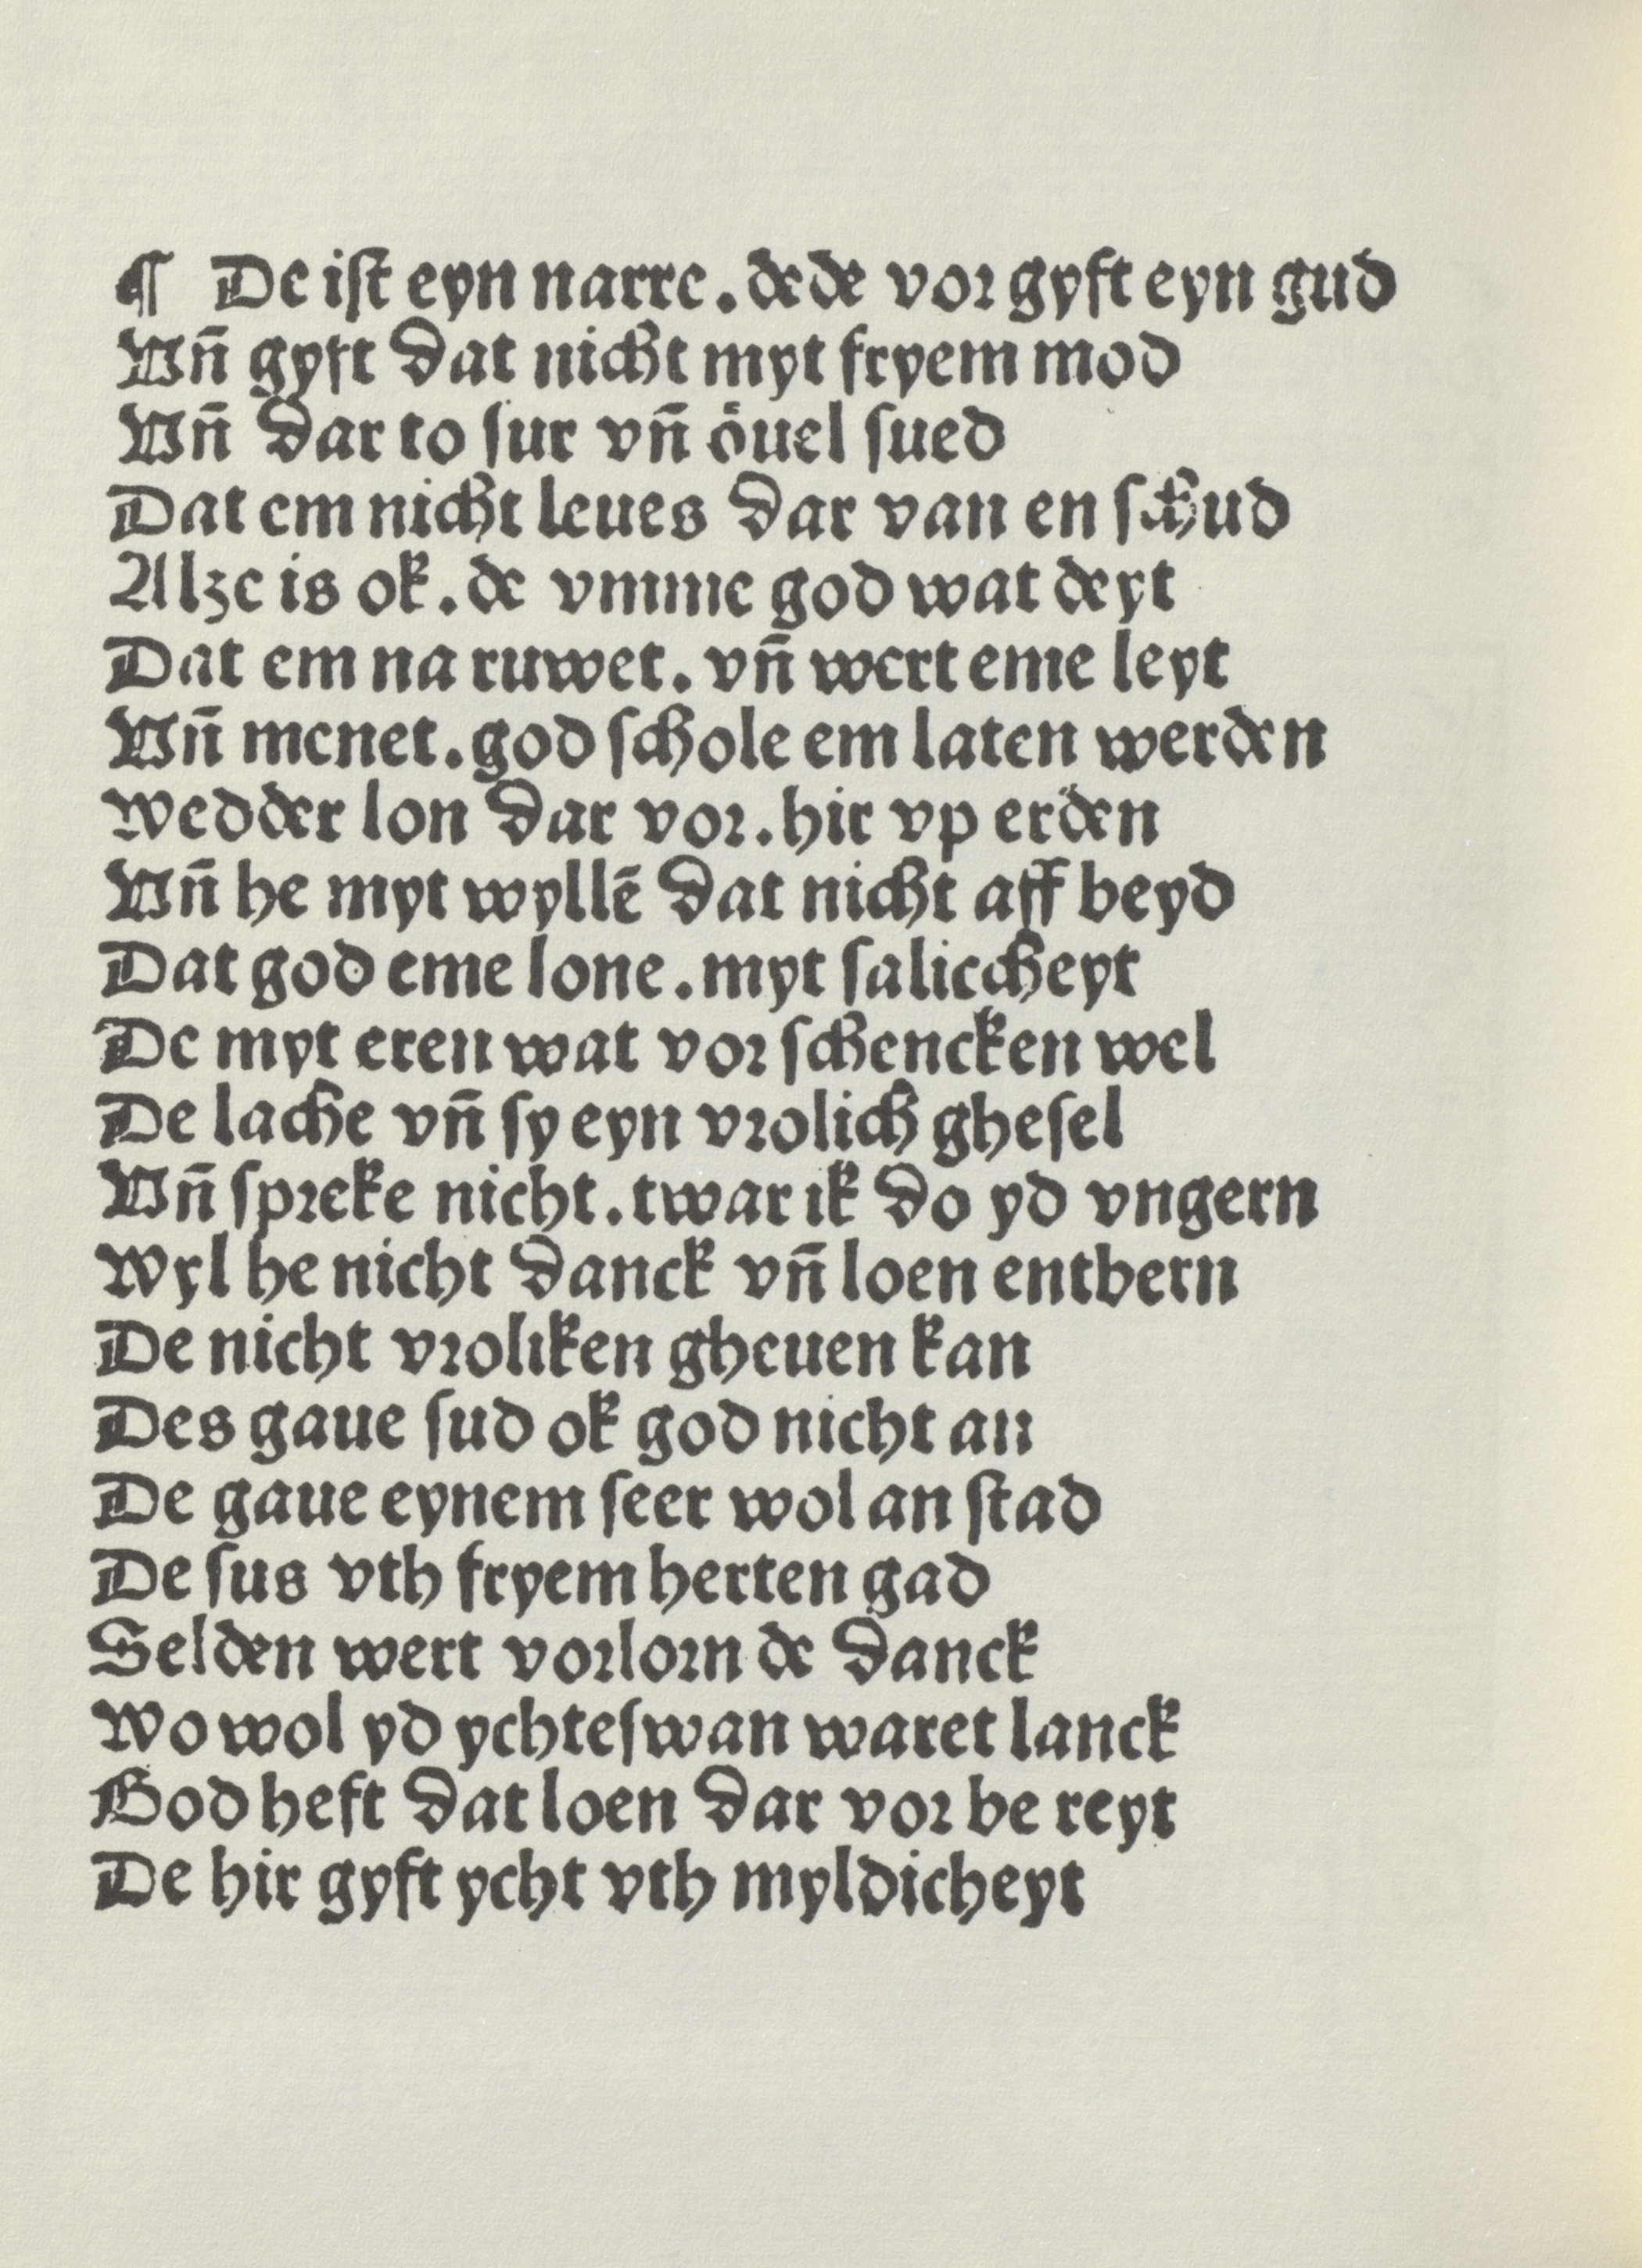 ¶ De iſt eyn narre. de de vor gyft eyn gud
Vn̄ gyft dat nicht myt fryem mod
Vn̄ dar to ſur vn̄ oͤuel ſued
Dat em nicht leues dar van en ſchud
Alze is ok. de vmme god wat deyt
Dat em na ruwet. vn̄ wert eme leyt
Vn̄ menet. god ſchole em laten werden
Wedder lon dar vor. hir vp erden
Vn̄ he myt wyllē dat nicht aff beyd
Dat god eme lone. myt ſaliccheyt
De myt eren wat vor ſchencken wel
De lache vn̄ ſy eyn vrolich gheſel
Vn̄ ſpreke nicht. twar ik do yd vngern
Wyl he nicht danck vn̄ loen entbern
De nicht vroliken gheuen kan
Des gaue ſud ok god nicht an
De gaue eynem ſeer wol an ſtad
De ſus vth fryem herten gad
Selden wert vorlorn de danck
Wo wol yd ychteſwan waret lanck
God heft dat loen dar vor be reyt
De hir gyft ycht vth myldicheyt